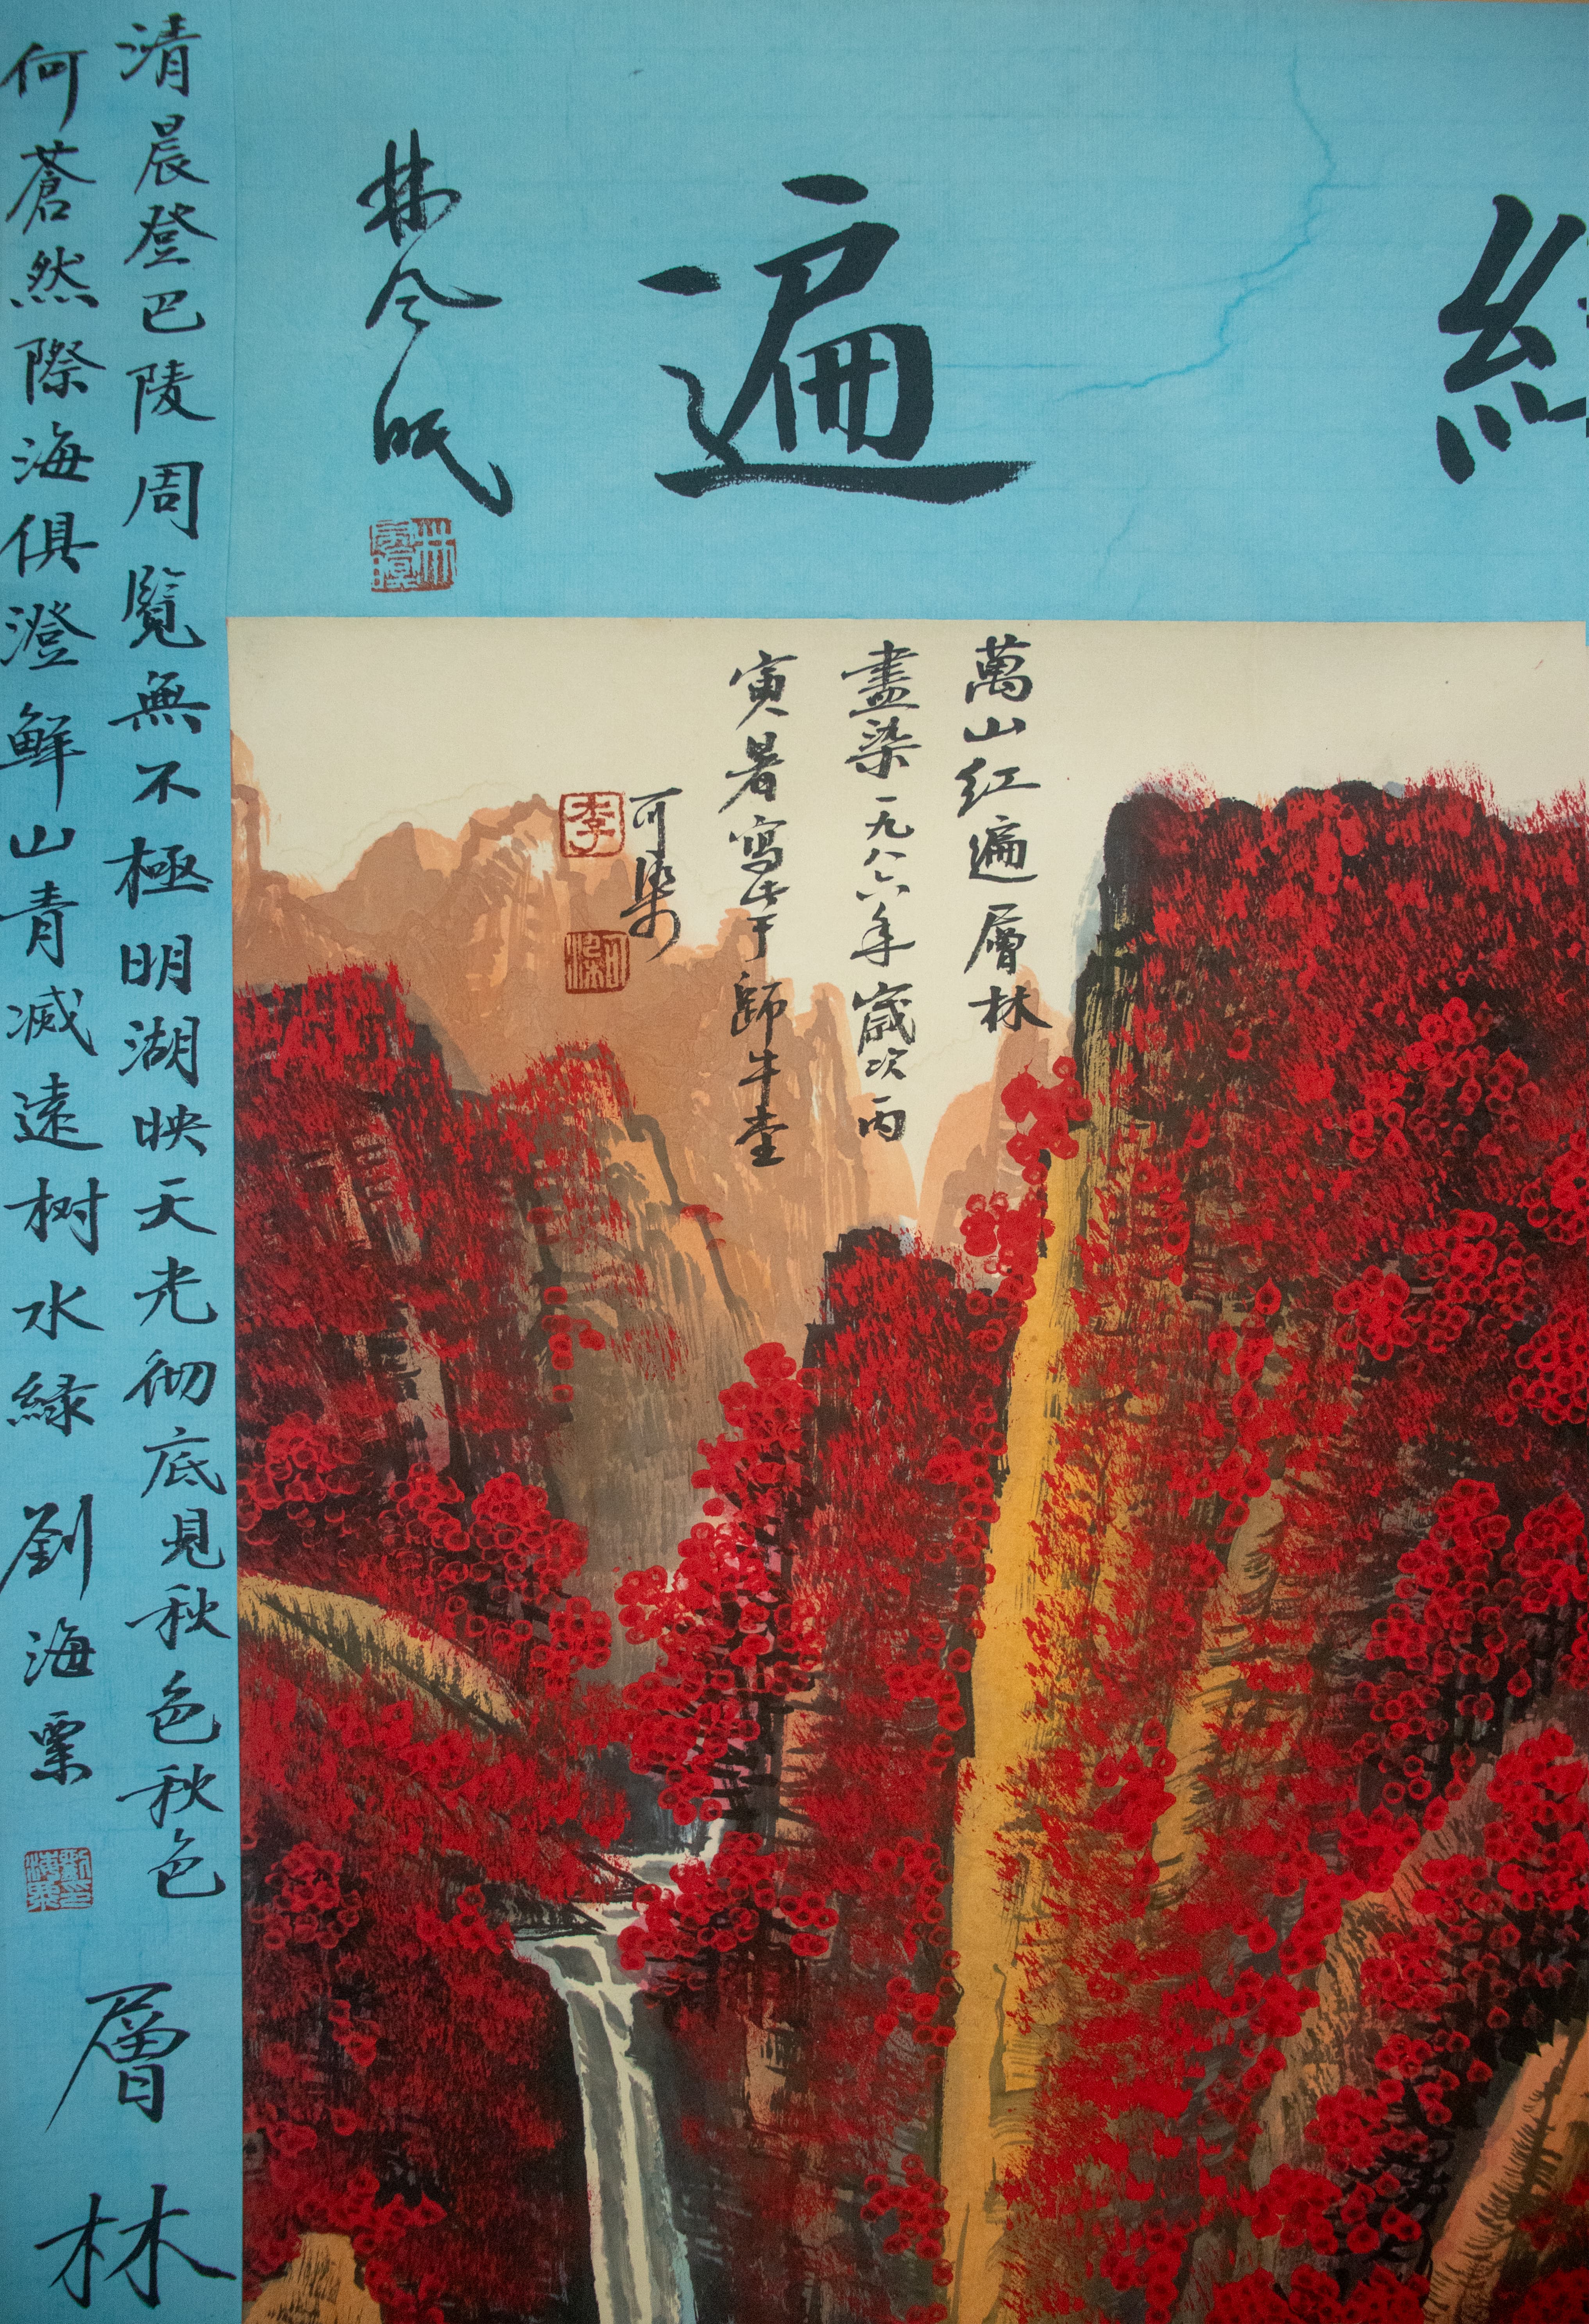 遍
林風眠
萬山红遍層林
盡染一九八六年歲次丙
寅暑寫於師牛堂
可染
李
可染
清晨登巴陵周覧無不極明湖映天光彻底見秋色秋色
何蒼然際海俱澄鮮山青滅遠树水緑
劉海粟
層林